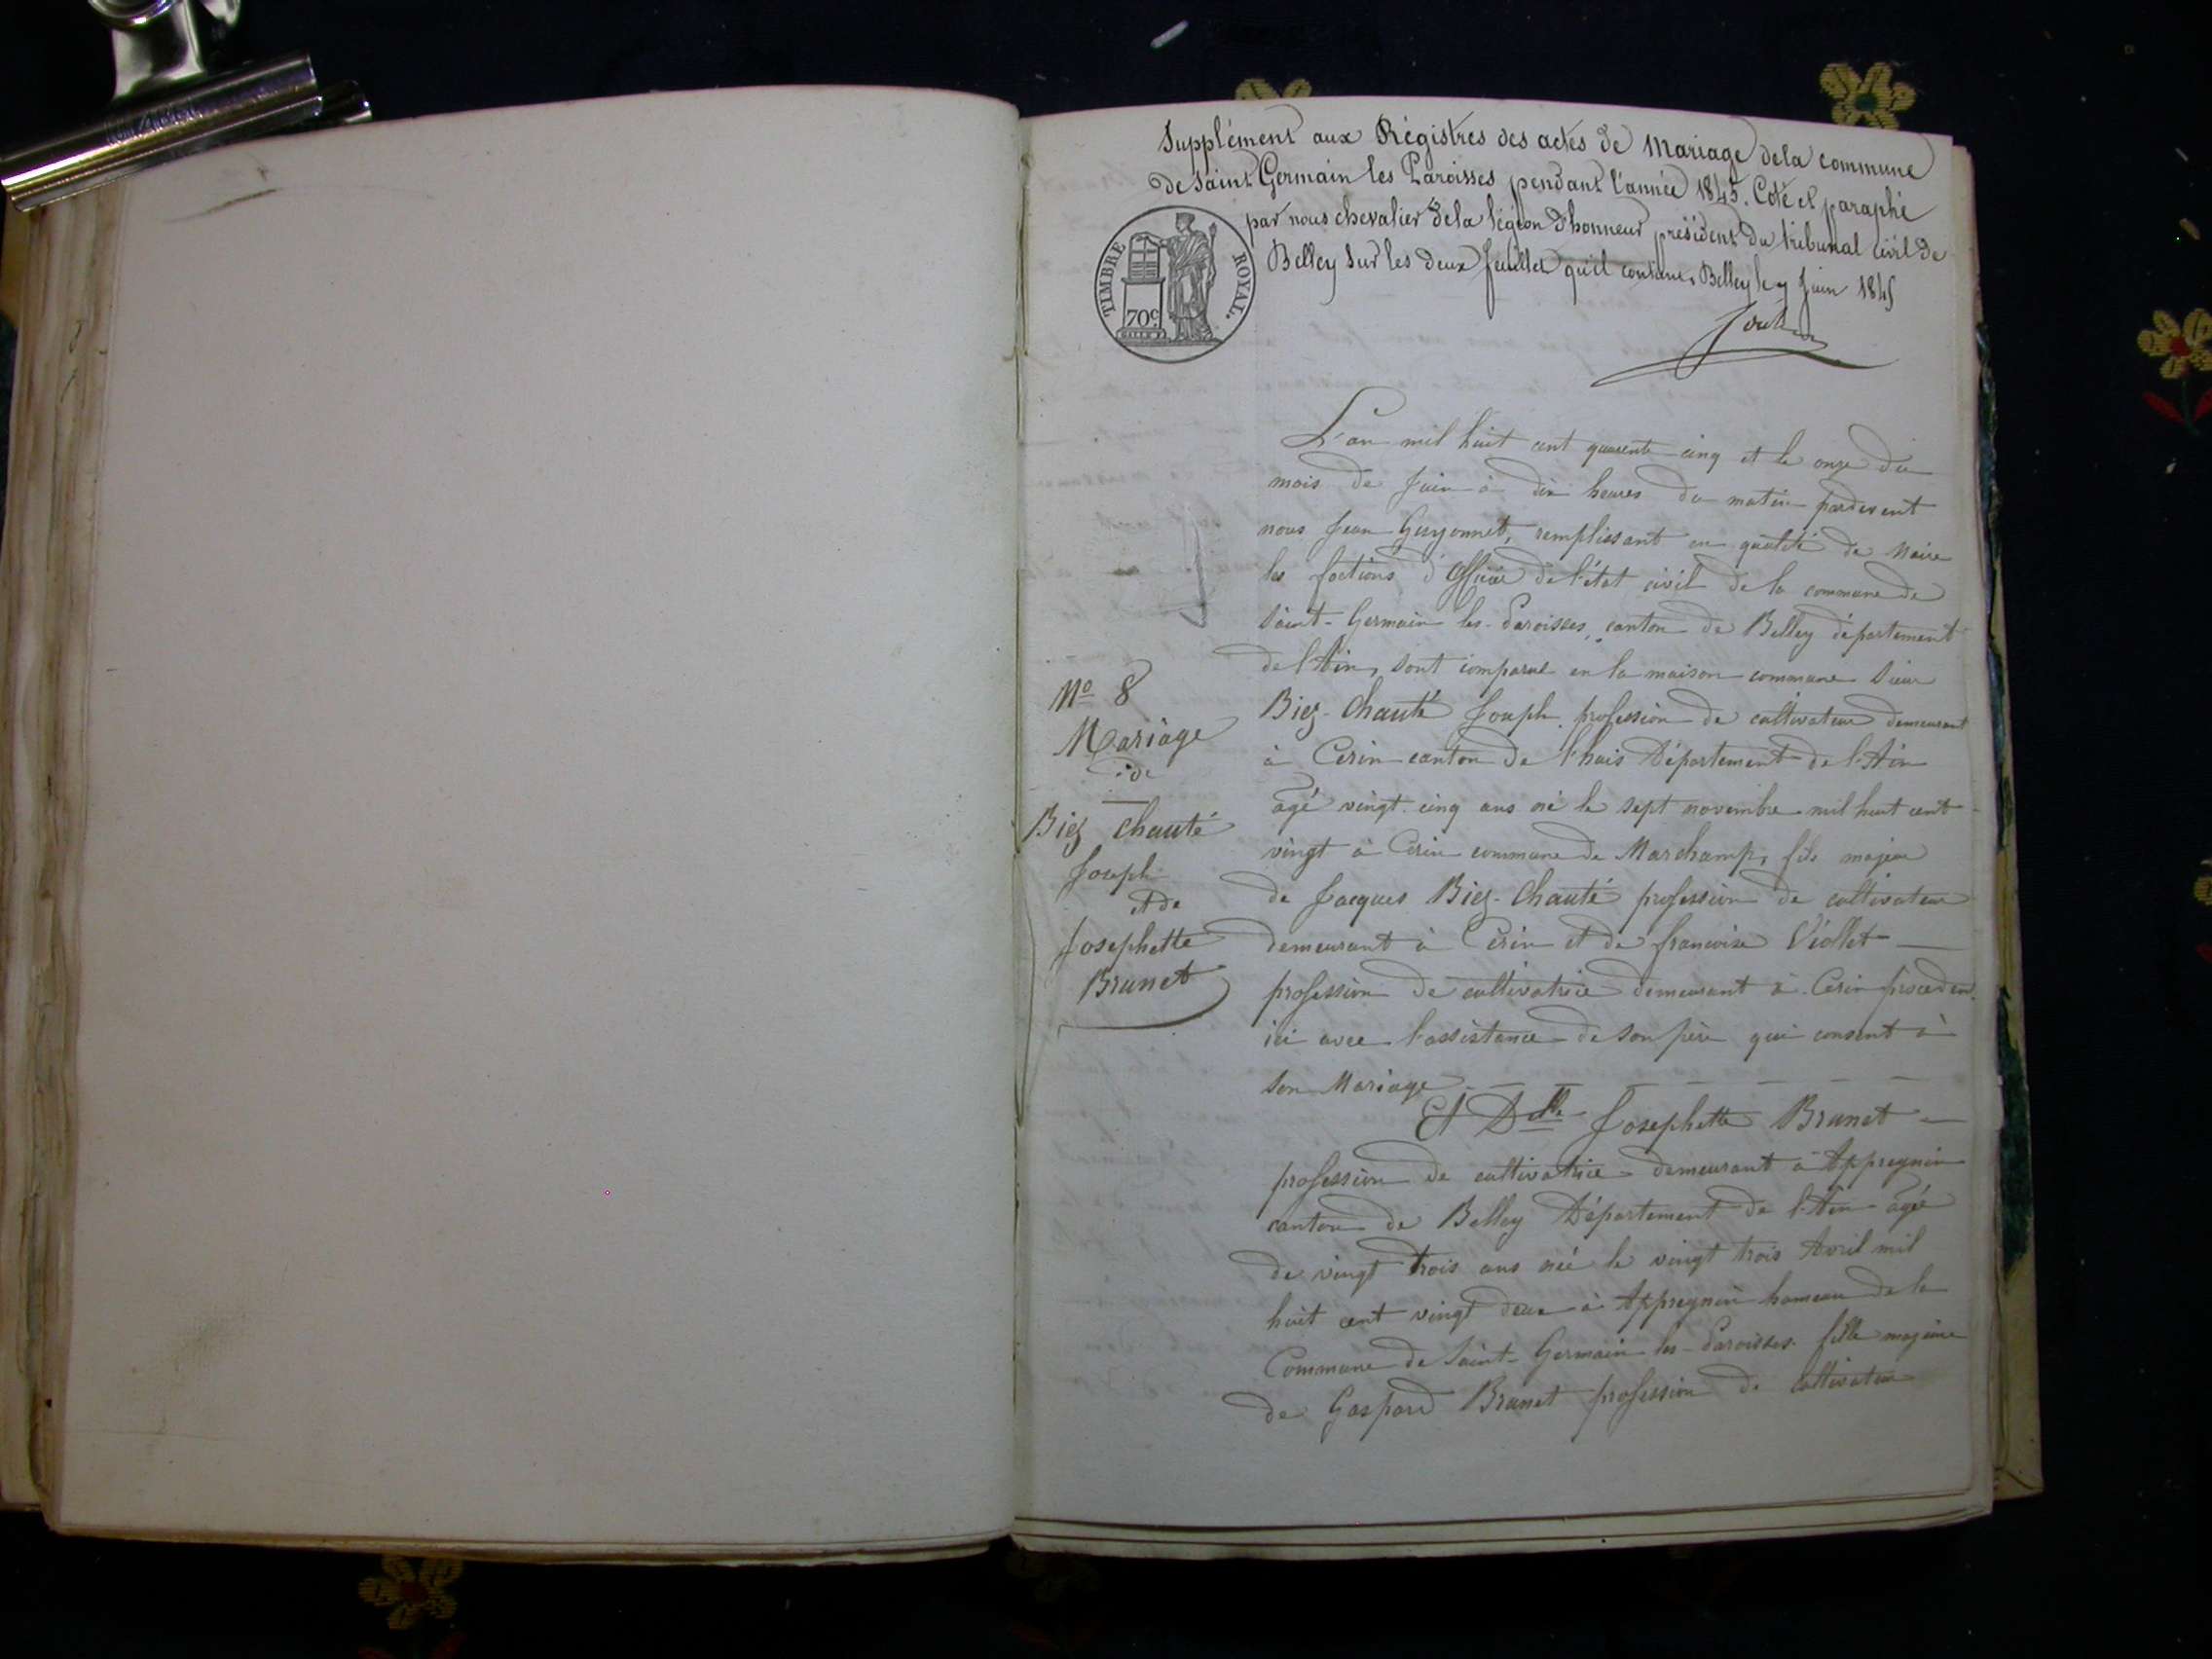 Supplément aux Régistres des actes de Mariage de la commune
de Saint Germain les Paroisses pendant l'année 1845. Coté et paraphé
par nous chevalier de la légion d'honneur président du tribunal civil de
Belley sur les deux feuillet qu'il contient, Belley le 7 Juin 1845
TIMBRE ROYAL.
70c
L'an mil huit cent quarente cinq et le onze du
mois de Juin à dix heures du matin pardevent
nous Jean Guyonnet, remplissant en qualité de Maire
les foctions d'Officier de l'état civil de la commune de
Saint-Germain-les-Paroisses, canton de Belley département
de l'Ain, sont comparue en la maison commune Sieur
Biez-Chanté Joseph profession de cultivateur demeurant
à Cerin canton de l'huis Département de l'Ain
agé vingt cinq ans né le sept novembre mil huit cent
vingt à Cerin commune de Marchamp, fils majeur
de Jacques Biez-Chanté profession de cultivateur
demeurant à Cerin et de francoise Viollet
profession de cultivatrice demeurant à Cerin proceden
ici avec l'assistance de son père qui consent à
son Mariage
Et Dlle Josephette Brunet
profession de cultivatrice demeurant à Appregnin
canton de Belley Département de l'Ain agé
de vingt trois ans née le vingt trois Avril mil
huit cent vingt deux à Appregnin hameau de la
Commune de Saint-Germain-les-Paroisses fille majeure
de Gaspard Brunet profession de cultivateur
No 8
Mariage
de
Biez chanté
Joseph
et de
Josephette
Brunet